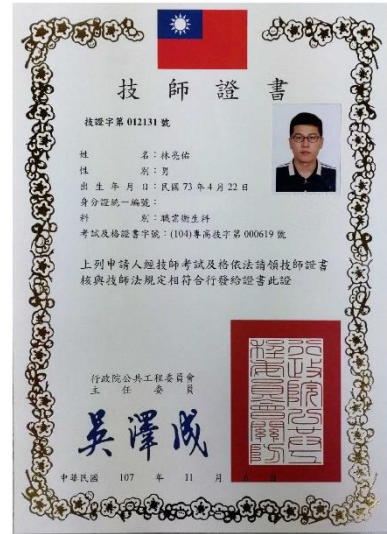 技師證書
技證字第 012131 號
姓 名：林亮佑
性 別：男
出生年月日：民國 73 年 4 月 22 日
身分證統一編號：
科 別：職業衛生科
考試及格證書字號：(104)專高技字第 000619 號
上列申請人經技師考試及格依法請領技師證書
核與技師法規定相符合行發給證書此證
行政院公共工程委員會
主任委員
吳澤成
行政院公共工程委員會關防
中華民國 107 年 11 月 日